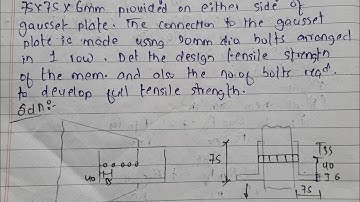 75 x 75 x 6mm provided on either side of
gausset plate. The connection to the gausset
plate is made using 20mm dia bolts arranged
in 1 row. Det the design tensile strength
of the mem. and also the no. of bolts reqd.
to develop full tensile strength.
Soln:
75
35
40
40
6
75